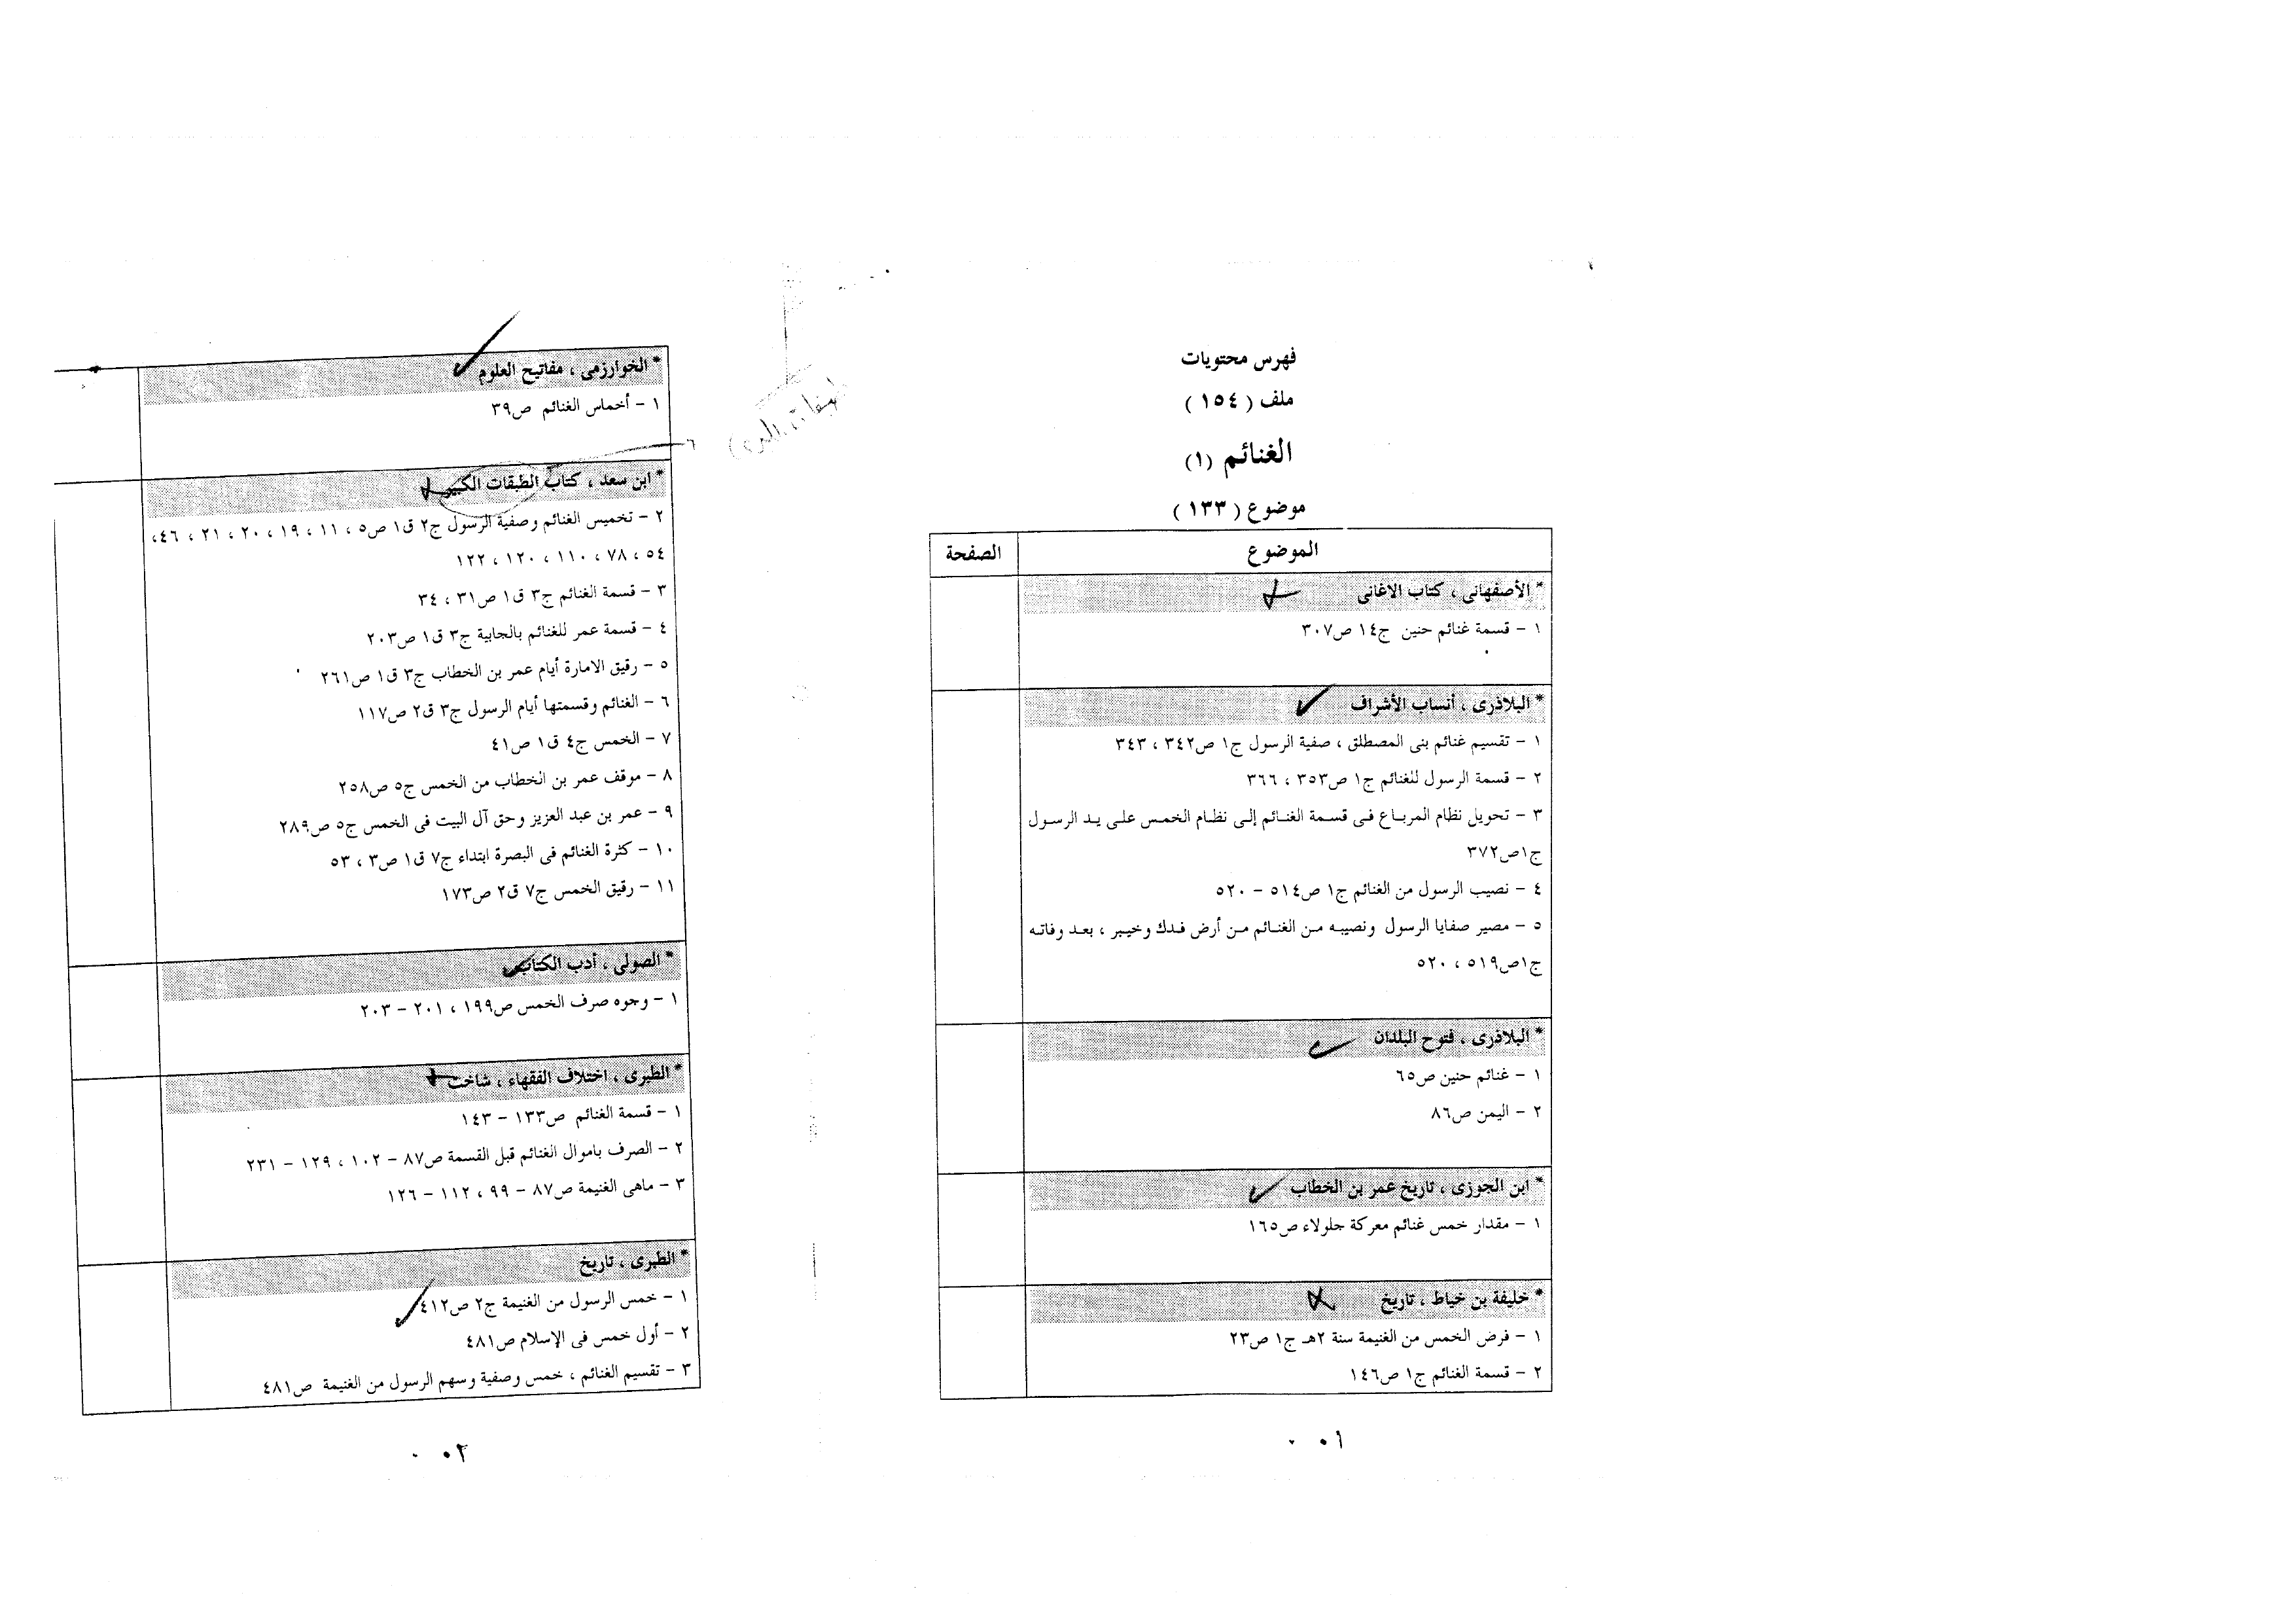 فهرس محتويات
ملف ( ١٥٤ )
الغنائم (١)
موضوع ( ١٣٣ )
الموضوع
الصفحة
* الأصفهانى ، كتاب الاغانى
١ - قسمة غنائم حنين ج١٤ ص٣٠٧
* البلاذرى ، أنساب الأشراف
١ - تقسيم غنائم بنى المصطلق ، صفية الرسول ج١ ص٣٤٢ ، ٣٤٣
٢ - قسمة الرسول للغنائم ج١ ص٣٥٣ ، ٣٦٦
٣ - تحويل نظام المرباع فى قسمة الغنائم إلى نظام الخمس على يد الرسول
ج١ص٣٧٢
٤ - نصيب الرسول من الغنائم ج١ ص٥١٤ - ٥٢٠
٥ - مصير صفايا الرسول ونصيبه من الغنائم من أرض فدك وخيبر ، بعد وفاته
ج١ص٥١٩ ، ٥٢٠
* البلاذرى ، فتوح البلدان
١ - غنائم حنين ص٦٥
٢ - اليمن ص٨٦
* ابن الجوزى ، تاريخ عمر بن الخطاب
١ - مقدار خمس غنائم معركة جلولاء ص١٦٥
* خليفة بن خياط ، تاريخ
١ - فرض الخمس من الغنيمة سنة ٢هـ ج١ ص٢٣
٢ - قسمة الغنائم ج١ ص١٤٦
٠ ٠١
* الخوارزمى ، مفاتيح العلوم
١ - أخماس الغنائم ص٣٩
* ابن سعد ، كتاب الطبقات الكبير
٢ - تخميس الغنائم وصفية الرسول ج٢ ق١ ص٥ ، ١١ ، ١٩ ، ٢٠ ، ٢١ ، ٤٦،
٥٤ ، ٧٨ ، ١١٠ ، ١٢٠ ، ١٢٢
٣ - قسمة الغنائم ج٣ ق١ ص٣١ ، ٣٤
٤ - قسمة عمر للغنائم بالجابية ج٣ ق١ ص٢٠٣
٥ - رقيق الامارة أيام عمر بن الخطاب ج٣ ق١ ص٢٦١
٦ - الغنائم وقسمتها أيام الرسول ج٣ ق٢ ص١١٧
٧ - الخمس ج٤ ق١ ص٤١
٨ - موقف عمر بن الخطاب من الخمس ج٥ ص٢٥٨
٩ - عمر بن عبد العزيز وحق آل البيت فى الخمس ج٥ ص٢٨٩
١٠ - كثرة الغنائم فى البصرة ابتداء ج٧ ق١ ص٣ ، ٥٣
١١ - رقيق الخمس ج٧ ق٢ ص١٧٣
* الصولى ، أدب الكتاب
١ - وجوه صرف الخمس ص١٩٩ ، ٢٠١ - ٢٠٣
* الطبرى ، اختلاف الفقهاء ، شاخت
١ - قسمة الغنائم ص١٣٣ - ١٤٣
٢ - الصرف باموال الغنائم قبل القسمة ص٨٧ - ١٠٢ ، ١٢٩ - ٢٣١
٣ - ماهى الغنيمة ص٨٧ - ٩٩ ، ١١٢ - ١٢٦
* الطبرى ، تاريخ
١ - خمس الرسول من الغنيمة ج٢ ص٤١٢
٢ - أول خمس فى الإسلام ص٤٨١
٣ - تقسيم الغنائم ، خمس وصفية وسهم الرسول من الغنيمة ص٤٨١
٠ ٠٢